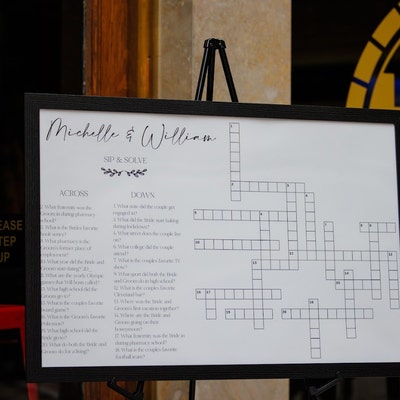 Michelle & William
SIP & SOLVE
ACROSS
DOWN
2. What fraternity was the
Groom in during pharmacy
school?
What is the
favorite
What pharmacy is the
Groom's former place of
employment?
10. What year did the Bride and
Groom start dating?
What are the yearly
games that Will
What high school did the
Groom go to?
What is the couples favorite
board game?
What is the Groom's favorite
Pokemon?
What high school did the
Bride go to?
20. What do both the Bride and
Groom do for a living?
1. What state did the couple get
engaged in?
What did the Bride start baking
during lockdown?
What street does the couple live
on?
6. What college did the couple
attend?
7. What is the couples favorite TV
show?
9. What sport did both the Bride
and Groom do in high school?
12. What is the couples favorite
Cleveland bar?
Where was the Bride and
Groom's first vacation together?
Where are the Bride and
Groom going on their
honeymoon?
17. What fraternity was the Bride in
during pharmacy school?
18. What is the couples favorite
football team?
EASE
TEP
UP